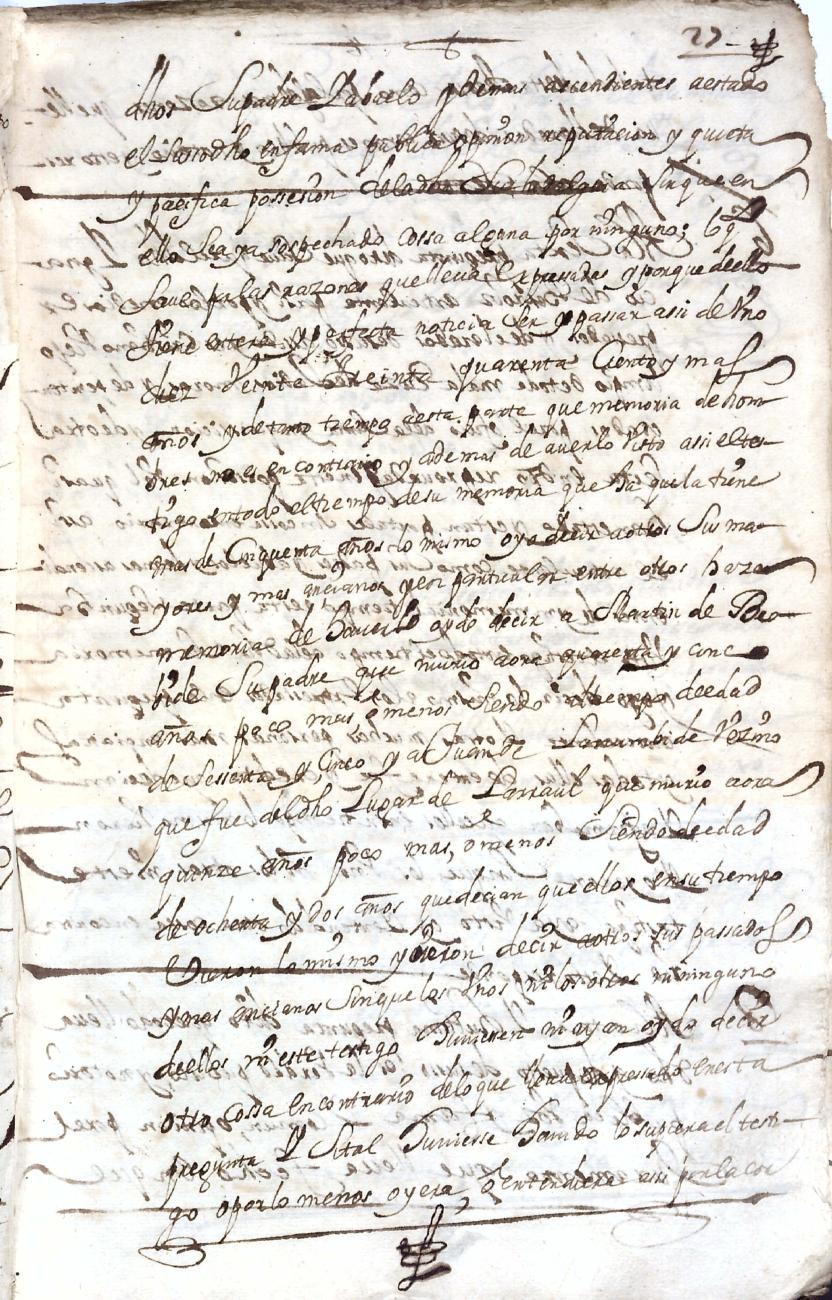 27
dhos Su padre Y abuelo y demas ascendientes a estado
el Susodho en fama publica opinion reputacion y quieta
y pacifica possesion de la dha Su hidalguia Sin que en
ello Se aya sospechado cossa alguna por ninguno; lo q̃
Saue por las razones que lleva Expresadas y porque de ello
tiene entera y perfecta noticia Ser y passar assi de Vno
diez Veinte treinta quarenta Ciento y mas
años y de tanto tiempo a esta parte que memoria de hom
bres no es en contrario y ademas de auerlo Visto assi el tes
tigo en todo el tiempo de su memoria que ha que la tiene
mas de Cinquenta años lo mismo oyo decir a otros Sus ma
yores y mas ancianos y en particular entre otros haze
memoria de hauerlo oydo decir a Martin de
Su padre que murio aora quarenta y cinco
años poco mas o menos Siendo al tiempo de edad
de Sessenta y Cinco y a Juan de Vezino
que fue del dho Lugar de Larraul que murio aora
quinze años poco mas, o menos Siendo de edad
de ochenta y dos años que decian que ellos en su tiempo
Vieron lo mismo y oieron decir a otros sus passados
y mas ancianos Sin que los Vnos ni los otros ni ninguno
de ellos ni este testigo huuiesen ni ayan oydo decir
otra cossa En contrario de lo que lleua Expresado en esta
pregunta Y Si tal huuiesse hauido lo supiera el testi
go o por lo menos oyera, o entendiera assi por la